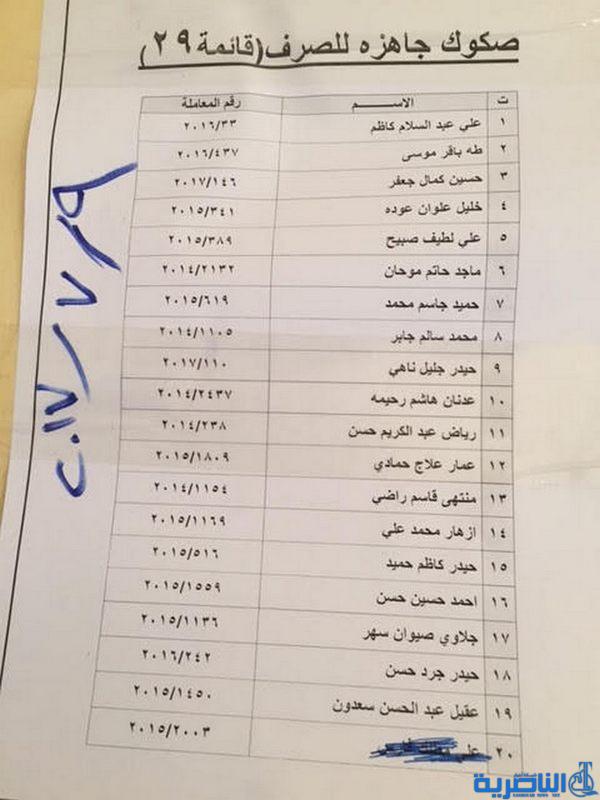 صكوك جاهزه للصرف (قائمة ٢٩)
ت الاســـــم رقم المعاملة
١ علي عبد السلام كاظم ٢٠١٦/٣٣
٢ طه باقر موسى ٢٠١٦/٤٣٧
٣ حسين كمال جعفر ٢٠١٧/١٤٦
٤ خليل علوان عوده ٢٠١٥/٣٤١
٥ علي لطيف صبيح ٢٠١٥/٣٨٩
٦ ماجد حاتم موحان ٢٠١٤/٢١٣٢
٧ حميد جاسم محمد ٢٠١٥/٦١٩
٨ محمد سالم جابر ٢٠١٤/١١٠٥
٩ حيدر جليل ناهي ٢٠١٧/١١٠
١٠ عدنان هاشم رحيمه ٢٠١٤/٢٤٣٧
١١ رياض عبد الكريم حسن ٢٠١٤/٢٣٨
١٢ عمار علاج حمادي ٢٠١٥/١٨٠٩
١٣ منتهى قاسم راضي ٢٠١٤/١١٥٤
١٤ ازهار محمد علي ٢٠١٥/١١٦٩
١٥ حيدر كاظم حميد ٢٠١٥/٥١٦
١٦ احمد حسين حسن ٢٠١٥/١٥٥٩
١٧ جلاوي صيوان سهر ٢٠١٥/١١٣٦
١٨ حيدر جرد حسن ٢٠١٦/٢٤٢
١٩ عقيل عبد الحسن سعدون ٢٠١٥/١٤٥٠
٢٠ علي ٢٠١٥/٢٠٠٣
٢٠١٧/٧/٩
الناصرية